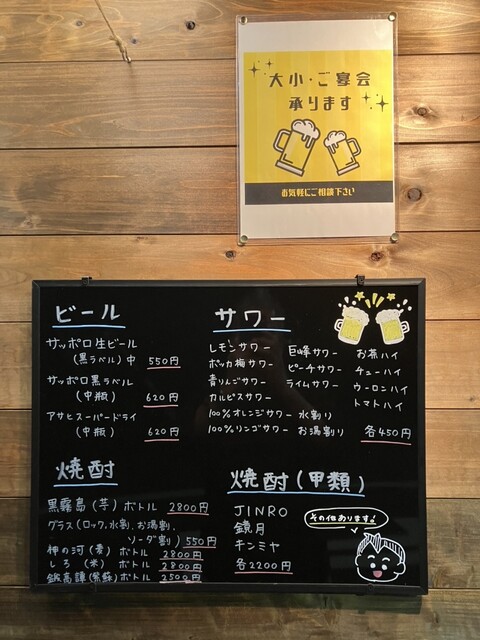 大小・ご宴会
承ります
お気軽にご相談下さい
ビール
サッポロ生ビール
(黒ラベル)中 550円
サッポロ黒ラベル
(中瓶) 620円
アサヒスーパードライ
(中瓶) 620円
サワー
レモンサワー
ポッカ梅サワー
青りんごサワー
カルピスサワー
100%オレンジサワー
100%リンゴサワー
巨峰サワー
ピーチサワー
ライムサワー
水割り
お湯割り
お茶ハイ
チューハイ
ウーロンハイ
トマトハイ
各450円
焼酎
黒霧島(芋)ボトル 2800円
グラス(ロック、水割、お湯割、
ソーダ割) 550円
神の河(麦) ボトル 2800円
しろ (米) ボトル 2800円
鍛高譚(紫蘇) ボトル 2500円
焼酎(甲類)
JINRO
鏡月
キンミヤ
各2200円
その他あります♪